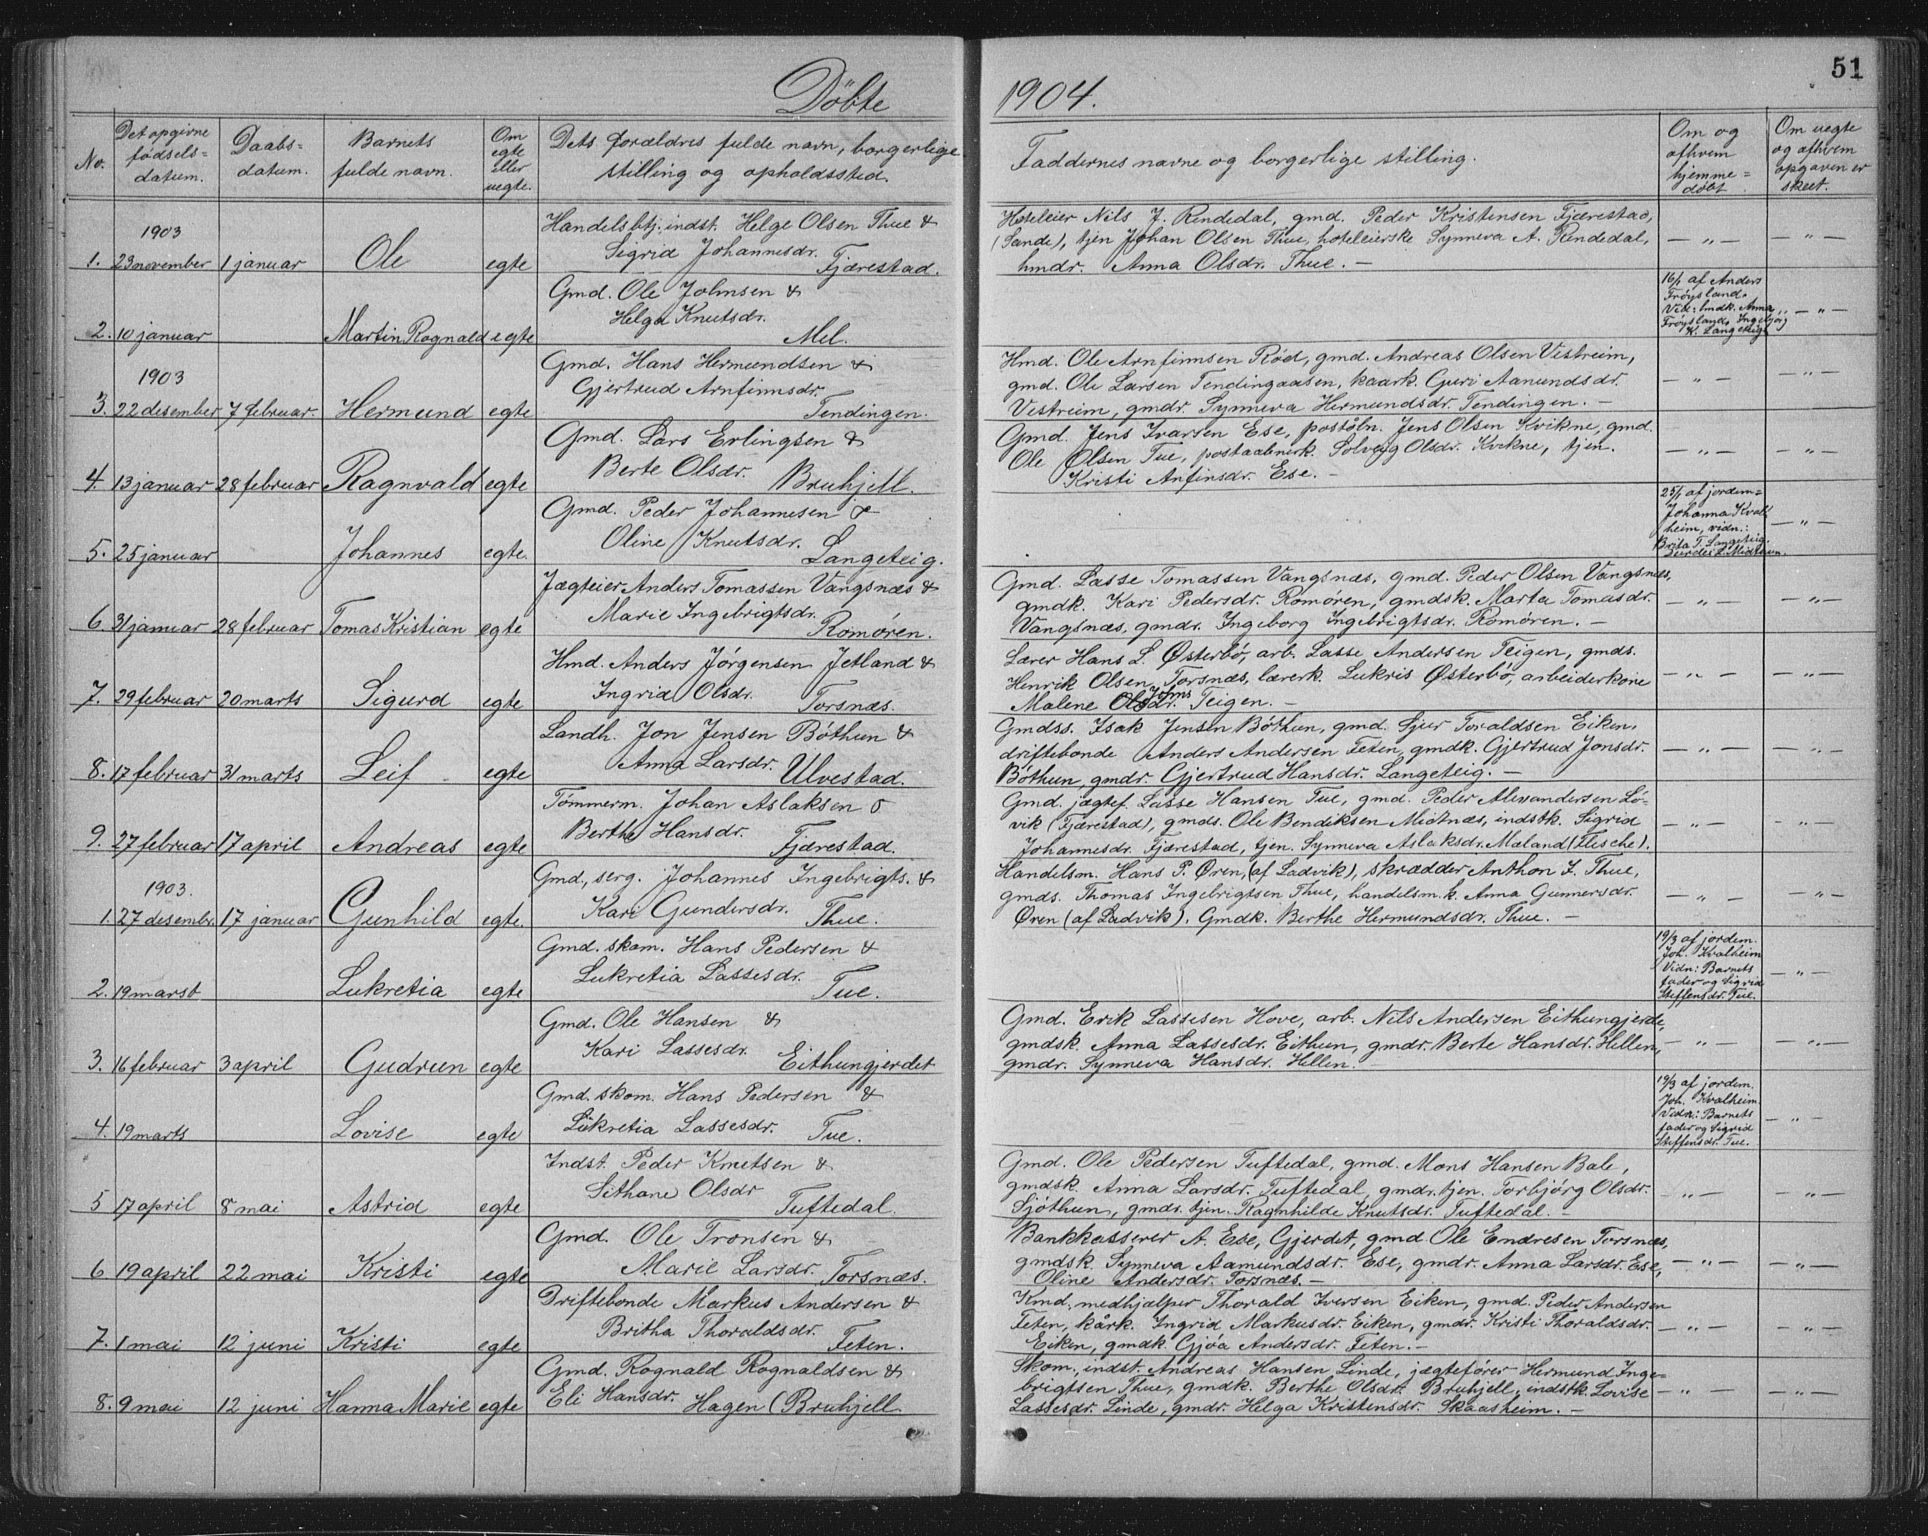 51
Döbte 1904.
No.
Det opgivne
födsels=
datum.
Daabs=
datum.
Barnets
fulde navn.
Om
egte
eller
uegte.
Dets forældres fulde navn, borgerlige
stilling og opholdssted.
Faddernes navne og borgerlige stilling.
Om og
afhvem
hjemme=
döbt
Om uegte
og afhvem
opgaven er
skeet.
1903
1. 23 november 1 januar Ole egte
Handelsbtj. indst. Helge Olsen Thue &
Sigrid Johannesdr.
Fjærestad.
Hoteleier Nils J. Rendedal, gmd. Peder Kristensen Fjærestad,
(Sande), tjen Johan Olsen Thue, hoteleierske Synneva A. Rendedal,
hmdr. Anna Olsdr. Thue. —
— " — — " —
2. 10 januar Martin Rognald egte
Gmd. Ole Johnsen &
Helga Knutsdr.
Mel.
16/1 af Anders
Fröysland.
Vid: hmdk. Anna
Fröysland, Ingebjörg
K. Langeteig
— " —
1903
3. 22 desember 7 februar. Hermund egte
Gmd. Hans Hermundsen &
Gjertrud Arnfinnsdr.
Tendingen.
Hmd. Ole Arnfinnsen Röd, gmd. Andreas Olsen Vestreim,
gmd. Ole Larsen Tendingaasen, kaark. Guri Aamundsdr.
Vestreim, gmdr. Synneva Hermundsdr. Tendingen. —
— " — — " —
4. 13 januar 28 februar Ragnvald egte
Gmd. Lars Erlingsen &
Berte Olsdr. Bruhjell.
Gmd. Jens Ivarsen Ese, postöln. Jens Olsen Kvikne, gmd.
Ole Olsen Tue, postaabnerk. Solveig Olsdr. Kvikne, tjen.
Kristi Anfinsdr. Ese. —
— " — — " —
5. 25 januar Johannes egte.
Gmd. Peder Johannesen &
Oline Knutsdr.
Langeteig.
25/1 af jordem=
Johanna Kval
heim, vidn.:
Brita T. Langeteig.
— " —
6. 31 januar 28 februar Tomas Kristian egte
Jægteier Anders Tomassen Vangsnæs &
Marie Ingebrigtsdr.
Romören.
Gmd. Lasse Tomassen Vangsnæs, gmd. Peder Olsen Vangsnæs,
gmdk. Kari Pedersdr. Romören, gmdsk. Marta Tomasdr.
Vangsnæs, gmdr. Ingeborg Ingebrigtsdr. Romören. —
— " — — " —
7. 29 februar 20 marts Sigurd egte
Hmd. Anders Jörgensen Jetland &
Ingrid Olsdr. Torsnæs.
Lærer Hans L. Österbö, arb. Lasse Andersen Teigen, gmds.
Henrik Olsen Torsnæs, lærerk. Lukris Österbö, arbeiderkone
Malene Olsdr. Teigen. —
— " — — " —
8. 17 februar 31 marts Leif egte
Landh. Jon Jensen Böthun &
Anna Larsdr. Ulvestad.
Gmdss. Isak Jensen Böthun, gmd. Sjur Toraldsen Eiken,
driftebonde Anders Andersen Feten, gmdk. Gjertrud Jonsdr.
Böthun, gmdr. Gjertrud Hansdr. Langeteig. —
— " — — " —
9. 27 februar 17 april Andreas egte
Tömmerm. Johan Aslaksen &
Berthe Hansdr.
Fjærestad.
Gmd. jægtef. Lasse Hansen Tue, gmd. Peder Alexandersen Lö-
vik (Fjærestad), gmds. Ole Bendiksen Midtnæs, indstk. Sigrid
Johannesdr. Fjærestad, tjen. Synneva Aslaksdr. Mæland (Flesche).
— " — — " —
1903.
1. 27 desembr. 17 januar Gunhild egte.
Gmd, serg. Johannes Ingebrigts. &
Kari Gundersdr. Thue.
Handelsm. Hans P. Øren, (af Ladvik), skrædder Anthon J. Thue,
gmds. Thomas Ingebrigtsen Thue, handelsm.k. Anna Gunnersdr.
Øren (af Ladvik). Gmdk. Berthe Hermundsdr. Thue. —
— " — — " —
2. 19 marst Lukretia egte
Gmd. skom. Hans Pedersen &
Lukretia Lassesdr.
Tue.
19/3 af jordem.
Joh. Kvalheim
Vidn: Barnets
fader og Sigrid
Steffensdr. Tue.
— " —
3. 16 februar 3 april Gudrun egte
Gmd. Ole Hansen &
Kari Lassesdr.
Eithungjerdet
Gmd. Erik Lassesen Hove, arb. Nils Andersen Eithungjerde,
gmdsk. Anna Lassesdr. Eithun, gmdr. Berte Hansdr. Hellen,
gmdr. Synneva Hansdr. Hellen. —
— " — — " —
4. 19 marts Lovise egte
Gmd. skom. Hans Pedersen &
Lukretia Lassesdr. Tue.
19/3 af jordem.
Joh. Kvalheim.
Vidn: Barnets
fader og Sigrid
Steffensdr. Tue.
— " —
5 17 april 8 mai Astrid egte
Indst. Peder Knutsen &
Sithane Olsdr
Tuftedal.
Gmd. Ole Pedersen Tuftedal, gmd. Mons Hansen Bale,
gmdsk. Anna Larsdr. Tuftedal, gmdr. tjen. Torbjörg Olsdr.
Sjöthun, gmdr. tjen. Ragnhilde Knutsdr. Tuftedal. —
— " — — " —
6 19 april 22 mai Kristi egte
Gmd. Ole Tronsen &
Marie Larsdr. Torsnæs.
Bankkasserer A. Ese, Gjerdet, gmd Ole Endresen Torsnæs,
gmdsk. Synneva Aamundsdr. Ese, gmdr. Anna Larsdr. Ese,
Oline Andersdr. Torsnæs. —
— " — — " —
7. 1 mai 12 juni Kristi egte
Driftebonde Markus Andersen &
Britha Thoraldsdr.
Feten.
Kmd. medhjælper Thorald Iversen Eiken, gmd. Peder Andersen
Feten, kårk. Ingrid Markusdr. Eiken, gmdr. Kristi Thoraldsdr.
Eiken, gmdk. Gjöa Andersdr. Feten. —
— " — — " —
8. 9 mai 12 juni Hanna Marie egte
Gmd. Rognald Rognaldsen &
Eli Hansdr. Hagen (Bruhjell
Skom., indst. Andreas Hansen Linde, jægtefører Hermund Inge-
brigtsen Thue, gmdk. Berthe Olsdr. Bruhjell, indstk. Lovise
Lassesdr. Linde, gmdr. Helga Kristensdr. Skaasheim. —
— " — — " —